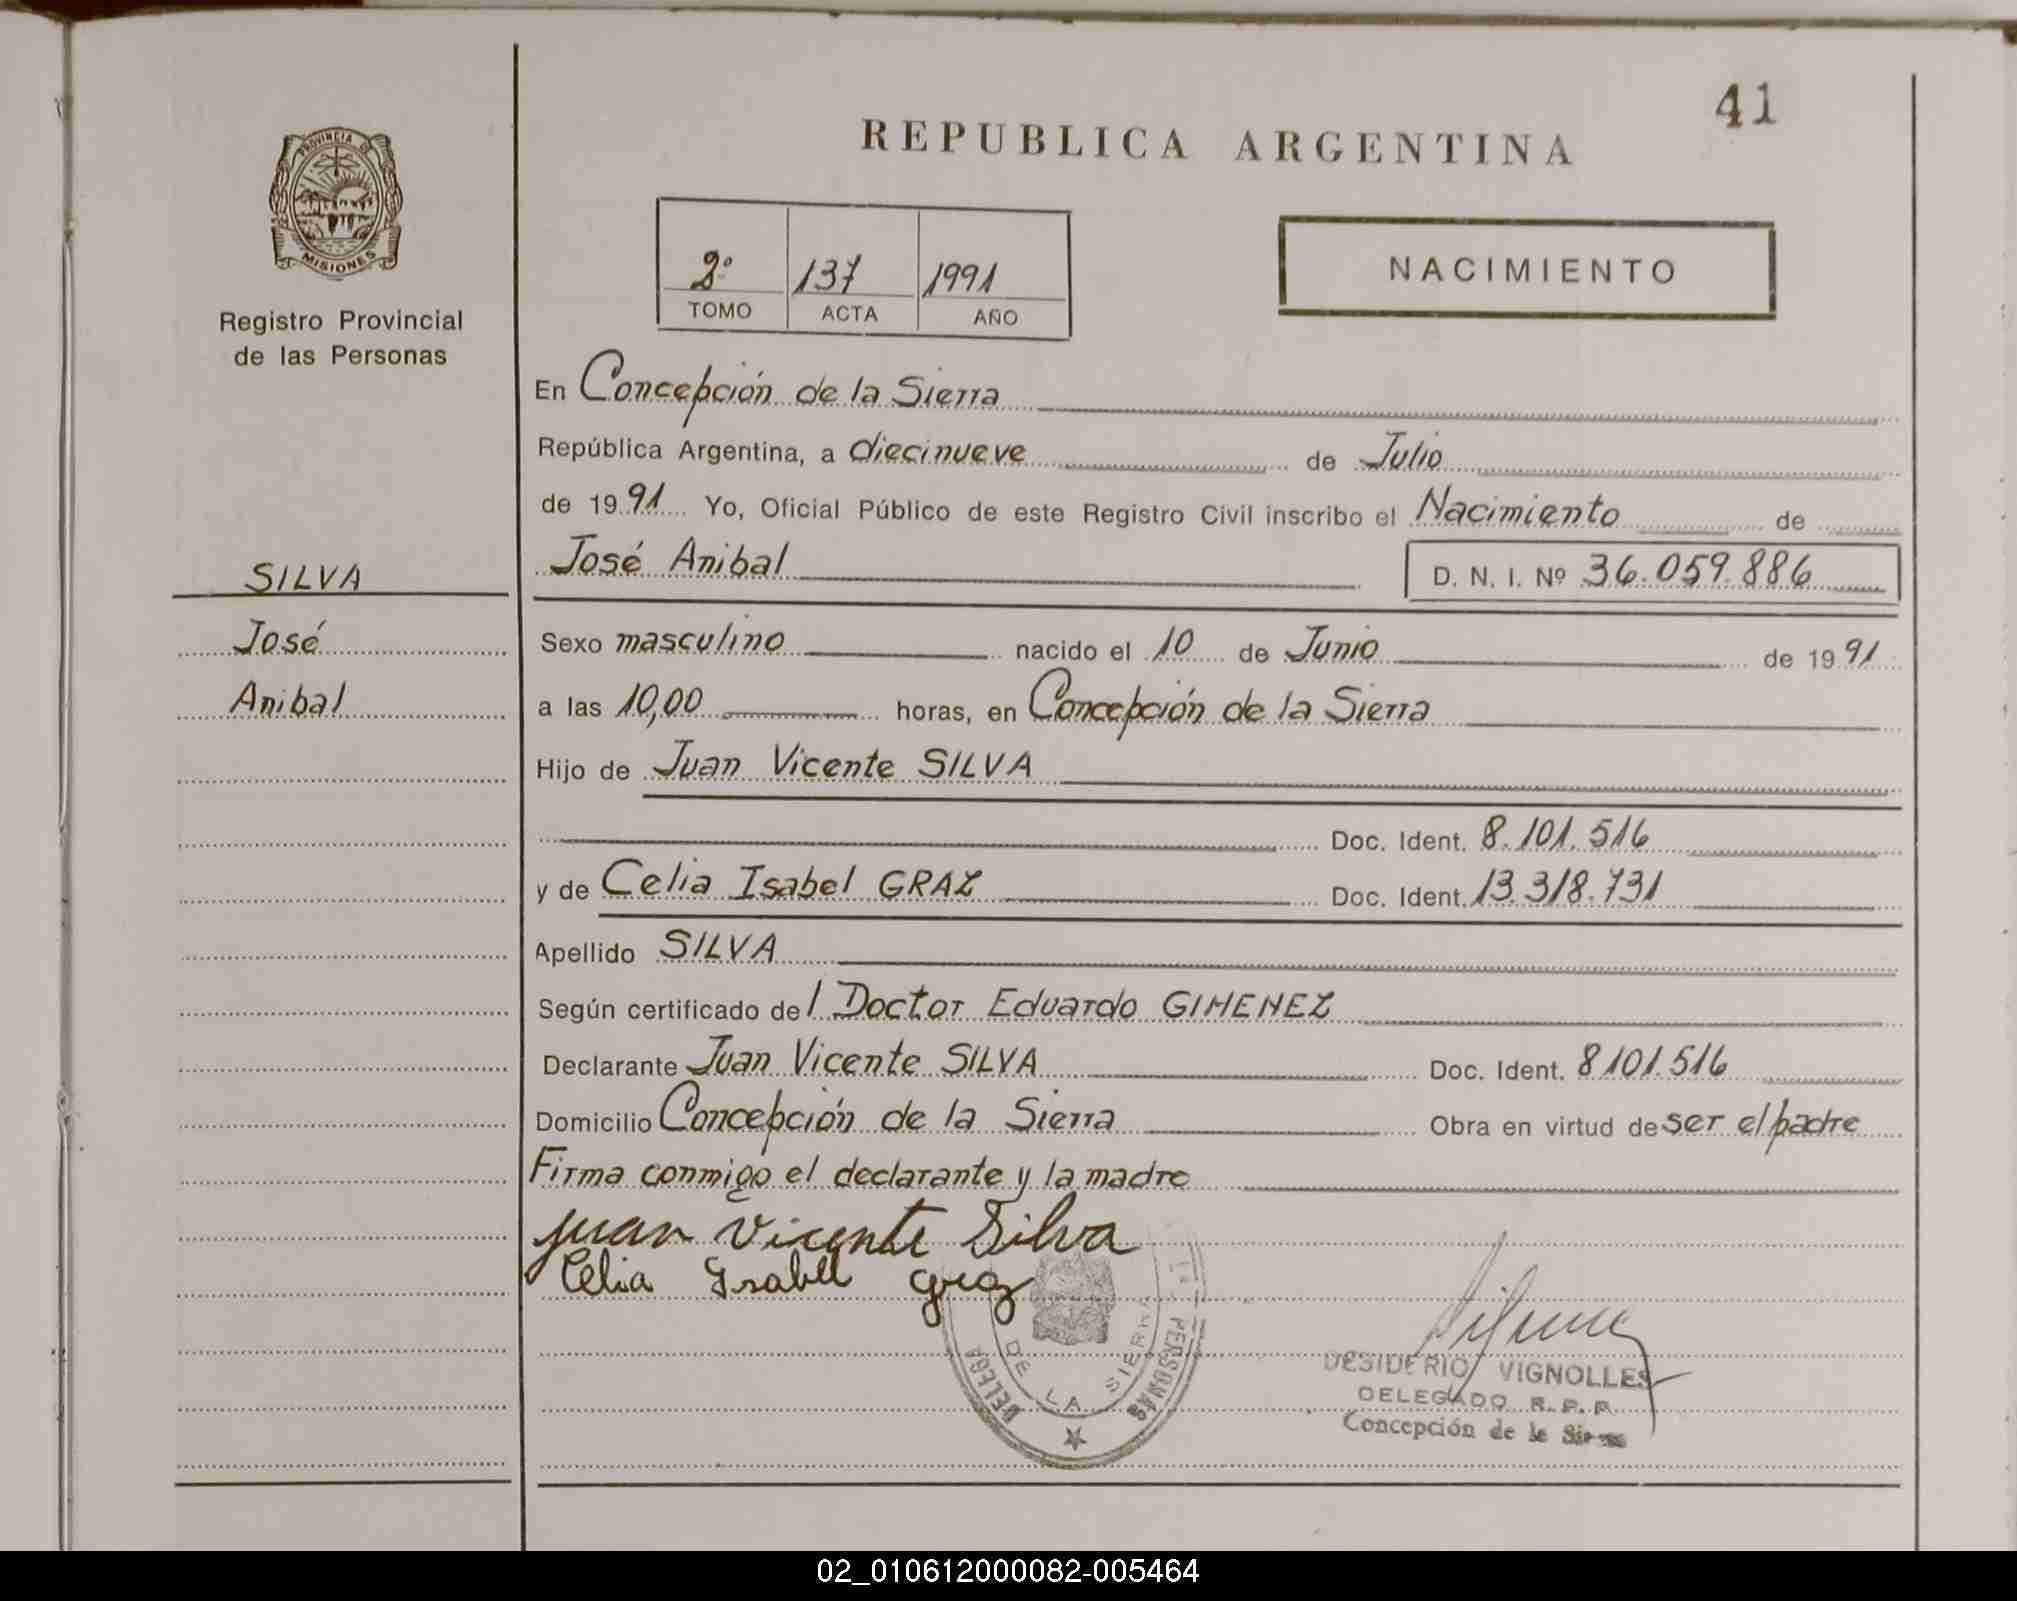 41
REPUBLICA ARGENTINA
PROVINCIA DE
MISIONES
Registro Provincial
de las Personas
2º 137 1991
TOMO ACTA AÑO
NACIMIENTO
En Concepción de la Sierra
República Argentina, a diecinueve de Julio
de 1991 Yo, Oficial Público de este Registro Civil inscribo el Nacimiento de
José Anibal D. N. I. Nº 36.059.886
SILVA
José
Anibal
Sexo masculino nacido el 10 de Junio de 1991
a las 10,00 horas, en Concepción de la Sierra
Hijo de Juan Vicente SILVA
Doc. Ident. 8.101.516
y de Celia Isabel GRAZ Doc. Ident. 13.318.731
Apellido SILVA
Según certificado del Doctor Eduardo GIMENEZ
Declarante Juan Vicente SILVA Doc. Ident. 8101.516
Domicilio Concepción de la Sierra Obra en virtud de ser el padre
Firma conmigo el declarante y la madre
Juan Vicente Silva
Celia Isabel Graz
DELEGA
PERSONAS
DE LA SIERRA
DESIDERIO VIGNOLLES
DELEGADO R. P. P.
Concepción de la Sierra
02_010612000082-005464